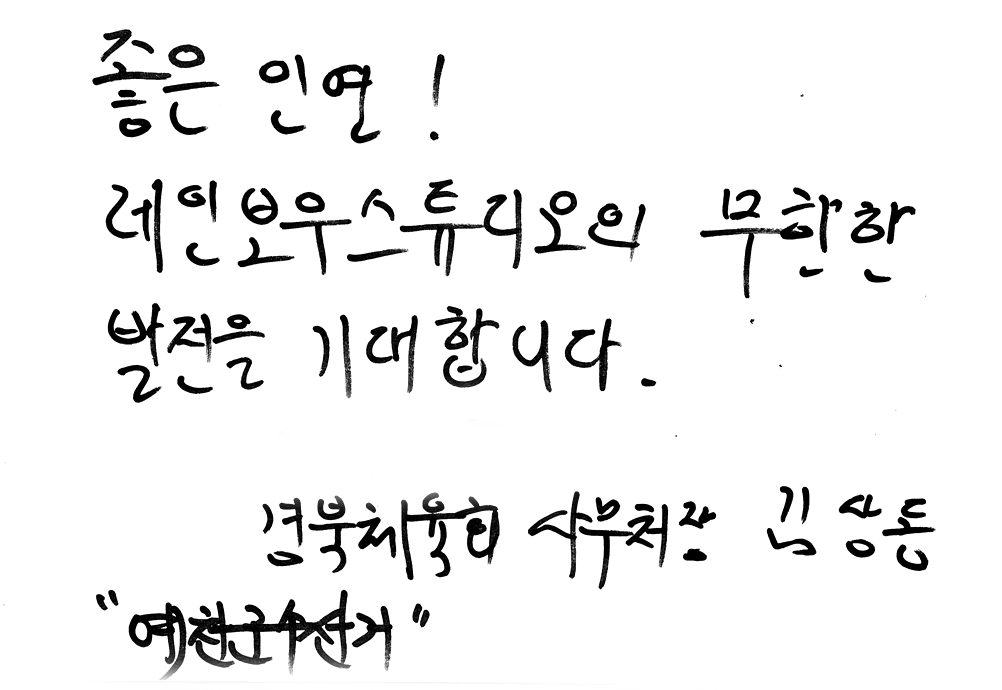 좋은 인연!
레인보우스튜디오의 무한한
발전을 기대합니다.
경북체육회 사무처장 김상동
"예천군수선거"